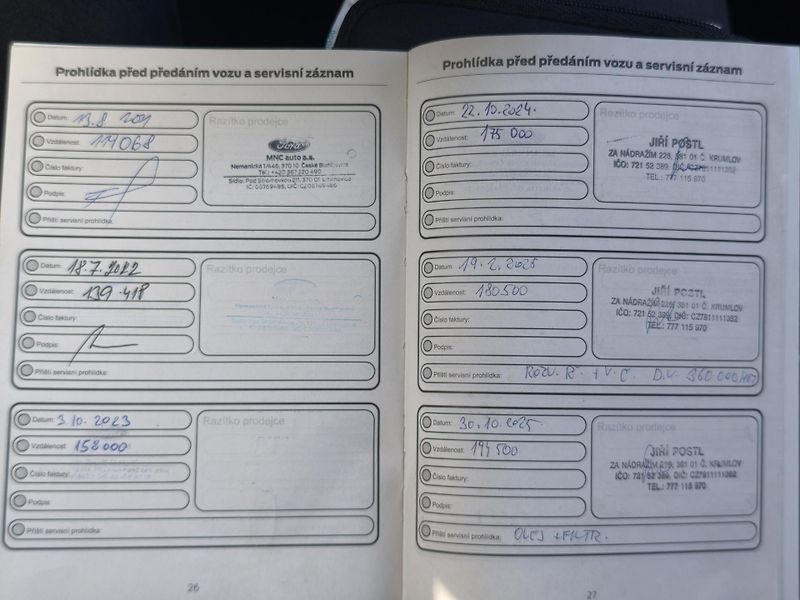 Prohlídka před předáním vozu a servisní záznam
Datum: 13.8 2021
Vzdálenost: 114068
Číslo faktury:
Podpis:
Příští servisní prohlídka:
Razítko prodejce
Ford
MNC auto a.s.
Datum: 18.7.2022
Vzdálenost: 139 418
Číslo faktury:
Podpis:
Příští servisní prohlídka:
Razítko prodejce
Datum: 3.10.2023
Vzdálenost: 158000
Číslo faktury:
Podpis:
Příští servisní prohlídka:
Razítko prodejce
26
Prohlídka před předáním vozu a servisní záznam
Datum: 22.10.2024.
Vzdálenost: 175 000
Číslo faktury:
Podpis:
Příští servisní prohlídka:
Razítko prodejce
JIŘÍ POSTL
ZA NÁDRAŽÍM 228, 381 01 Č. KRUMLOV
IČO: 721 52 389, DIČ: CZ7811111352
TEL.: 777 115 970
Datum: 19.2.2025
Vzdálenost: 180500
Číslo faktury:
Podpis:
Příští servisní prohlídka: ROZV. Ř. + V.Č. D.V. 360.000
Razítko prodejce
JIŘÍ POSTL
ZA NÁDRAŽÍM 228, 381 01 Č. KRUMLOV
IČO: 721 52 389, DIČ: CZ7811111352
TEL.: 777 115 970
Datum: 30.10.2025
Vzdálenost: 194500
Číslo faktury:
Podpis:
Příští servisní prohlídka: OLEJ + FILTR.
Razítko prodejce
JIŘÍ POSTL
ZA NÁDRAŽÍM 228, 381 01 Č. KRUMLOV
IČO: 721 52 389, DIČ: CZ7811111352
TEL.: 777 115 970
27